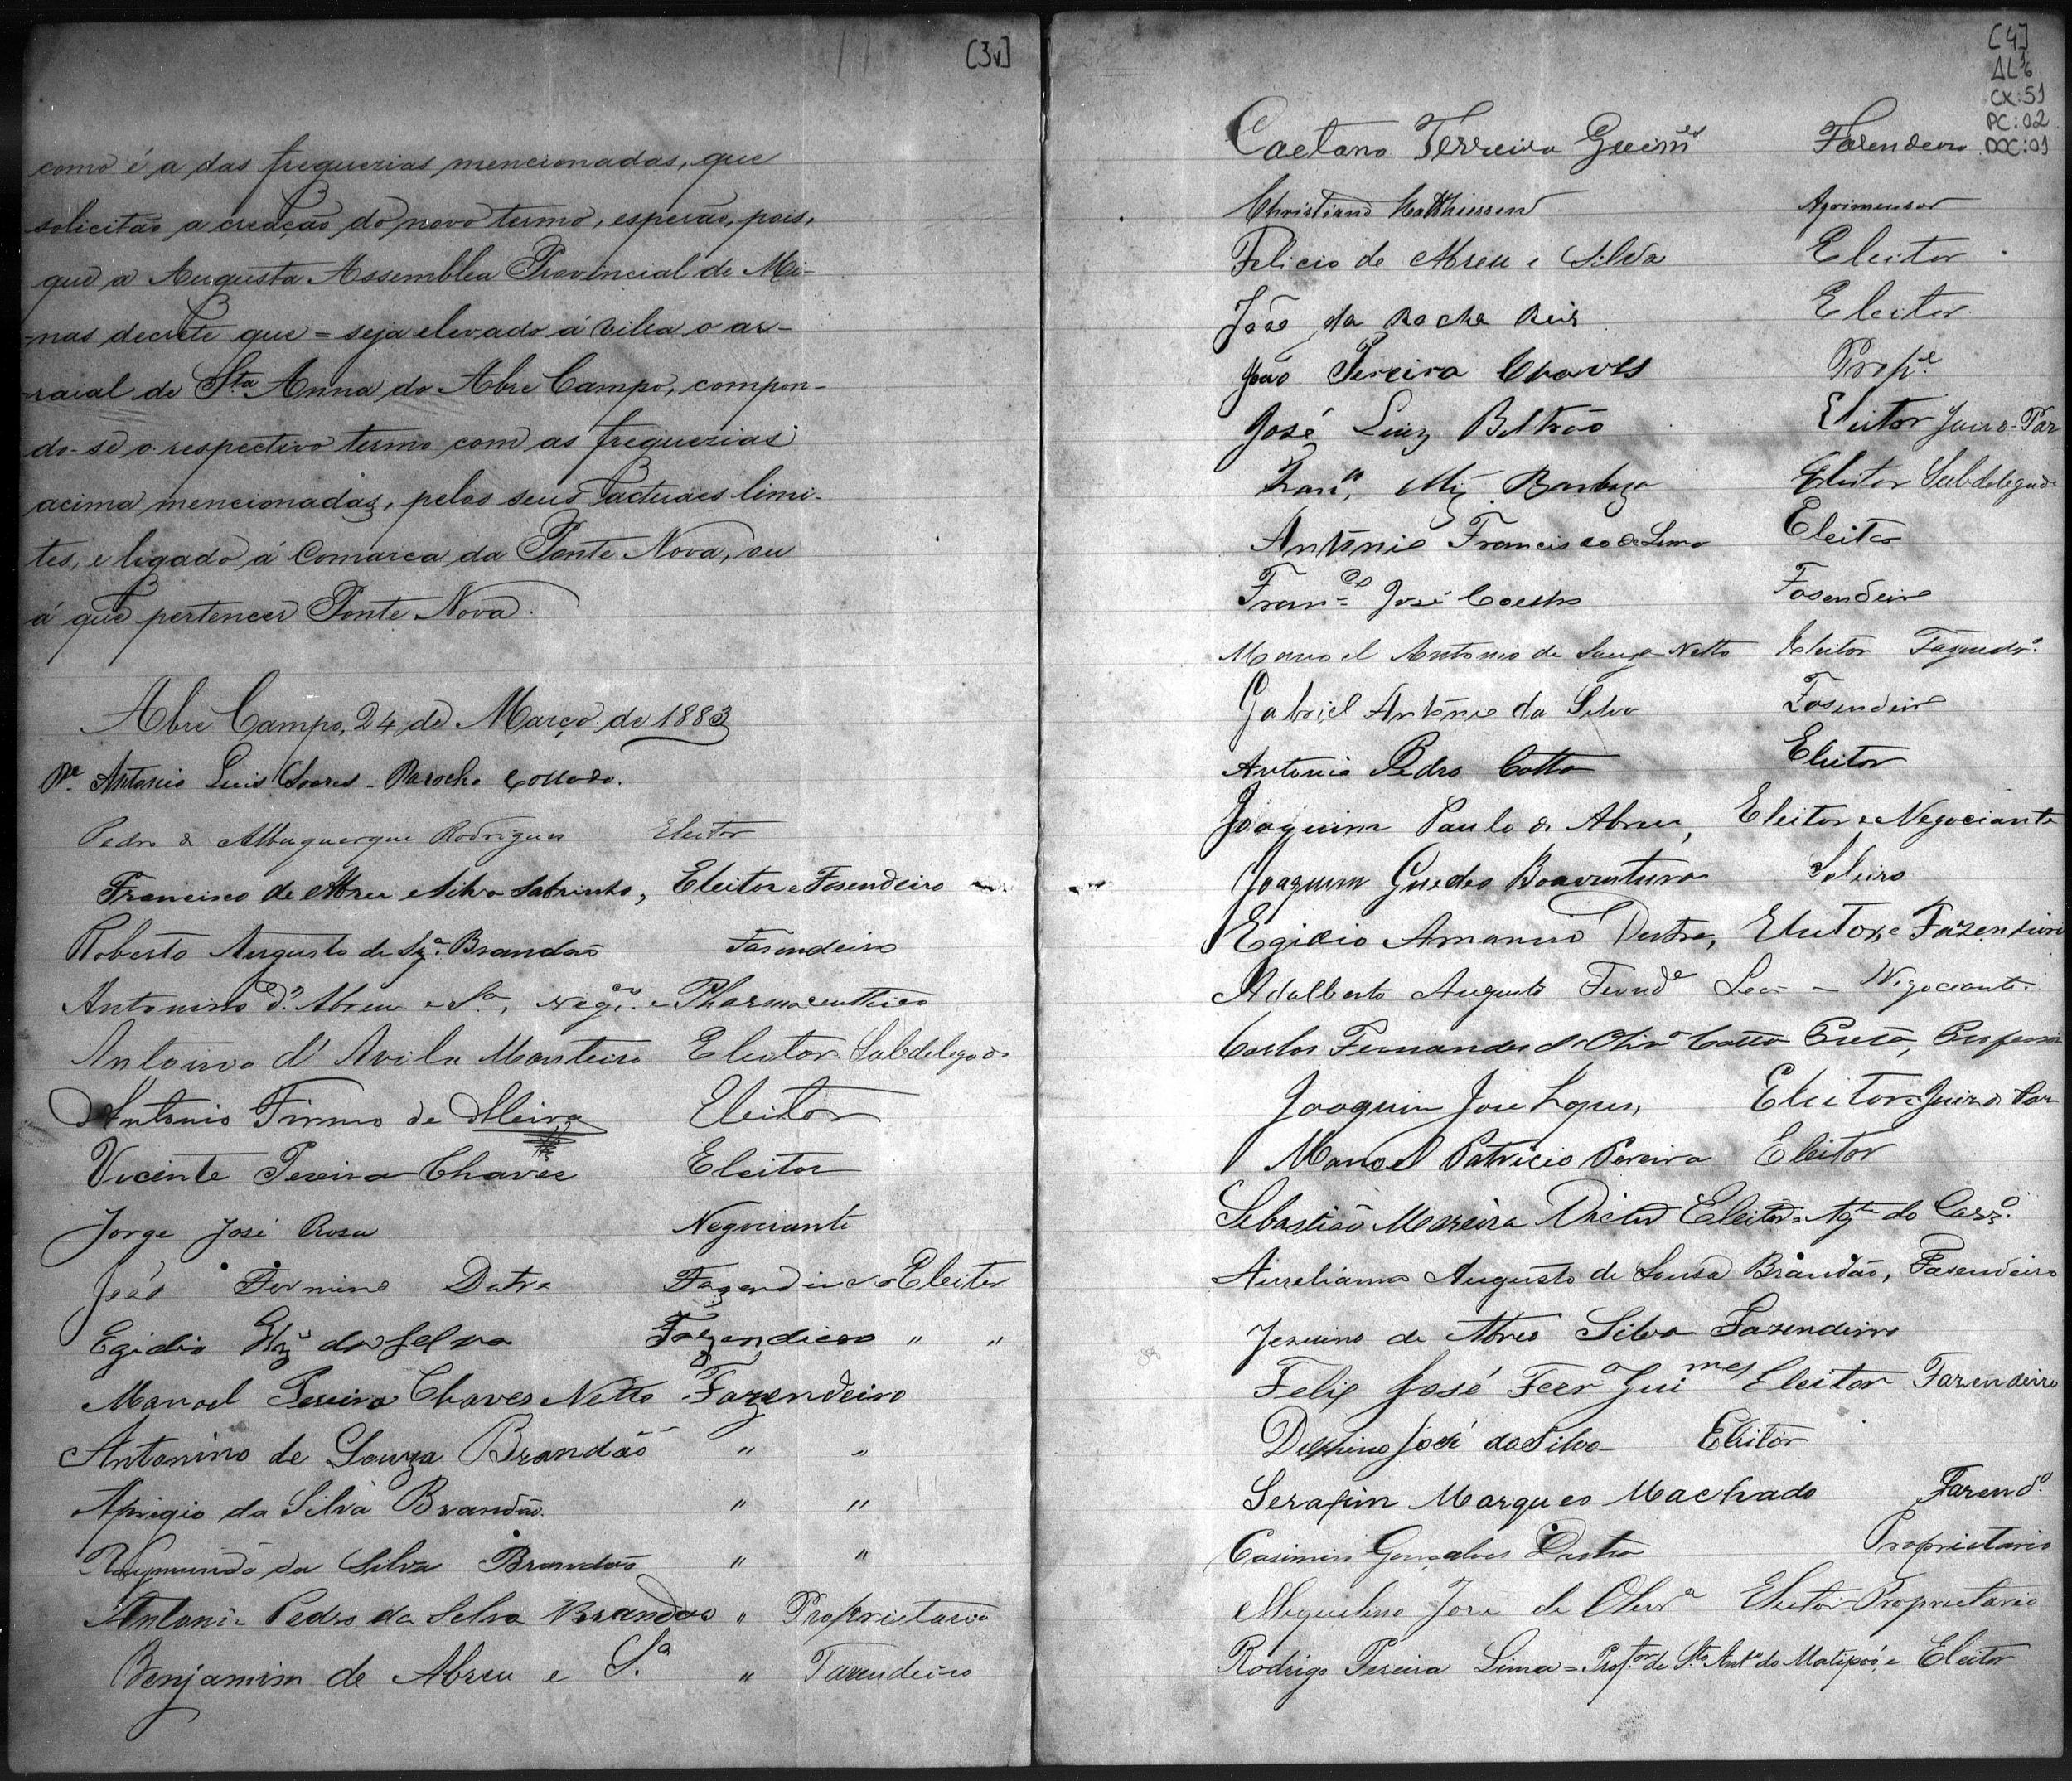 [3v]
como é a das freguezias mencionadas, que
solicitão a creação do novo termo, esperão, pois,
que a Augusta Assemblea Provincial de Mi-
-nas decrete que = seja elevado á Villa o ar-
-raial de Sta Anna do Abre Campo, compon-
do-se o respectivo termo com as freguezias
acima mencionadas, pelos seus actuaes limi-
tes, e ligado á Comarca da Ponte Nova, ou
á que pertencer Ponte Nova.
Abre Campo, 24 de Março de 1883
Pe. Antonio Luis Soares - Parocho Collado.
Pedro de Albuquerque Rodrigues Eleitor
Francisco de Abreu e Silva Sobrinho, Eleitor e Fasendeiro
Roberto Augusto de Sza. Brandão Fasendeiro
Antonino d'. Abreu e Sa., Nege. e Pharmaceuthico
Antonio d'Avila Monteiro Eleitor Subdelegado
Antonio Firmo de Meira Eleitor
Vicente Pereira Chaves Eleitor
Jorge José Rosa Negociante
João Fermino Dutra Fazendeiro e Eleitor
Egidio da Selva Fazendiero " "
Manoel Pereira Chaves Netto Fazendeiro
Antonino de Souza Brandão " "
Aprigio da Silva Brandão. " "
Raymundo da Silva Brandão " "
Antonio Pedro da Selva Brandão " Proprietario
Benjamim de Abreu e Sa " Fazendeiro
[4]
AL
CX:51
PC:02
DOC:01
Caetano Ferreira Guimes Fazendeiro
Christiano Matthiessen Agrimensor
Felicio de Abreu e Silva Eleitor
João da Rocha Reis Eleitor
João Pereira Chaves Prope.
José Luiz Beltrão Eleitor Juiz d Paz
Barboza Eleitor Subdelegado
Antonio Francisco de Lima Eleitor
Franco José Coelho Fosendeiro
Manoel Antonio de Souza Netto Eleitor Fazendro.
Gabriel Antonio da Silva Fosendeiro
Antonio Pedro Cotta Eleitor
Joaquim Paulo de Abreu, Eleitor e Negociante
Joaquim Guedes Boaventura Seleiro
Egidio Amancio Dutra, Eleitor e Fazendeiro
Adalberto Augusto Fernde Leão - Negociante.
Carlos Fernandes d'Olivra Cotta Preto, Professor
Joaquim Jose Lopes, Eleitor e Juiz d Paz
Manoel Patricio Pereira Eleitor
Sebastião Moreira Eleitor e Agte do Corro.
Aureliano Augusto de Sousa Brandão, Fasendeiro
Jesuino de Abreo Silva Fazendeiro
Felix José Ferra Guimes Eleitor Fazendeiro
Delphino José da Silva Eleitor
Serafim Marques Machado Fazendo.
Casimiro Gonçalves Dutra Proprietario
Miguelino Jose de Olivra Eleitor Proprietario
Rodrigo Pereira Lima = Profor. de Sto. Anto. do Matipoó, e Eleitor